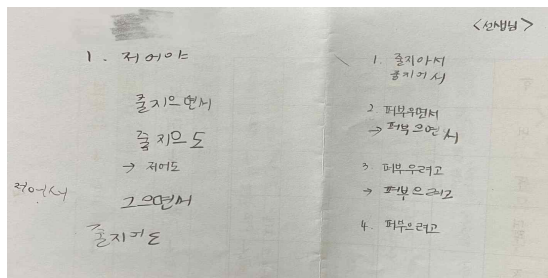 1. 저어야
줄지으면서
줄지으도
→ 저어도
저어서
그으면서
줄지어도
<선생님>
1. 줄지아서
줄지어서
2. 퍼부우면서
→ 퍼부으면서
3. 퍼부우려고
→ 퍼부으려고
4. 퍼부으려고